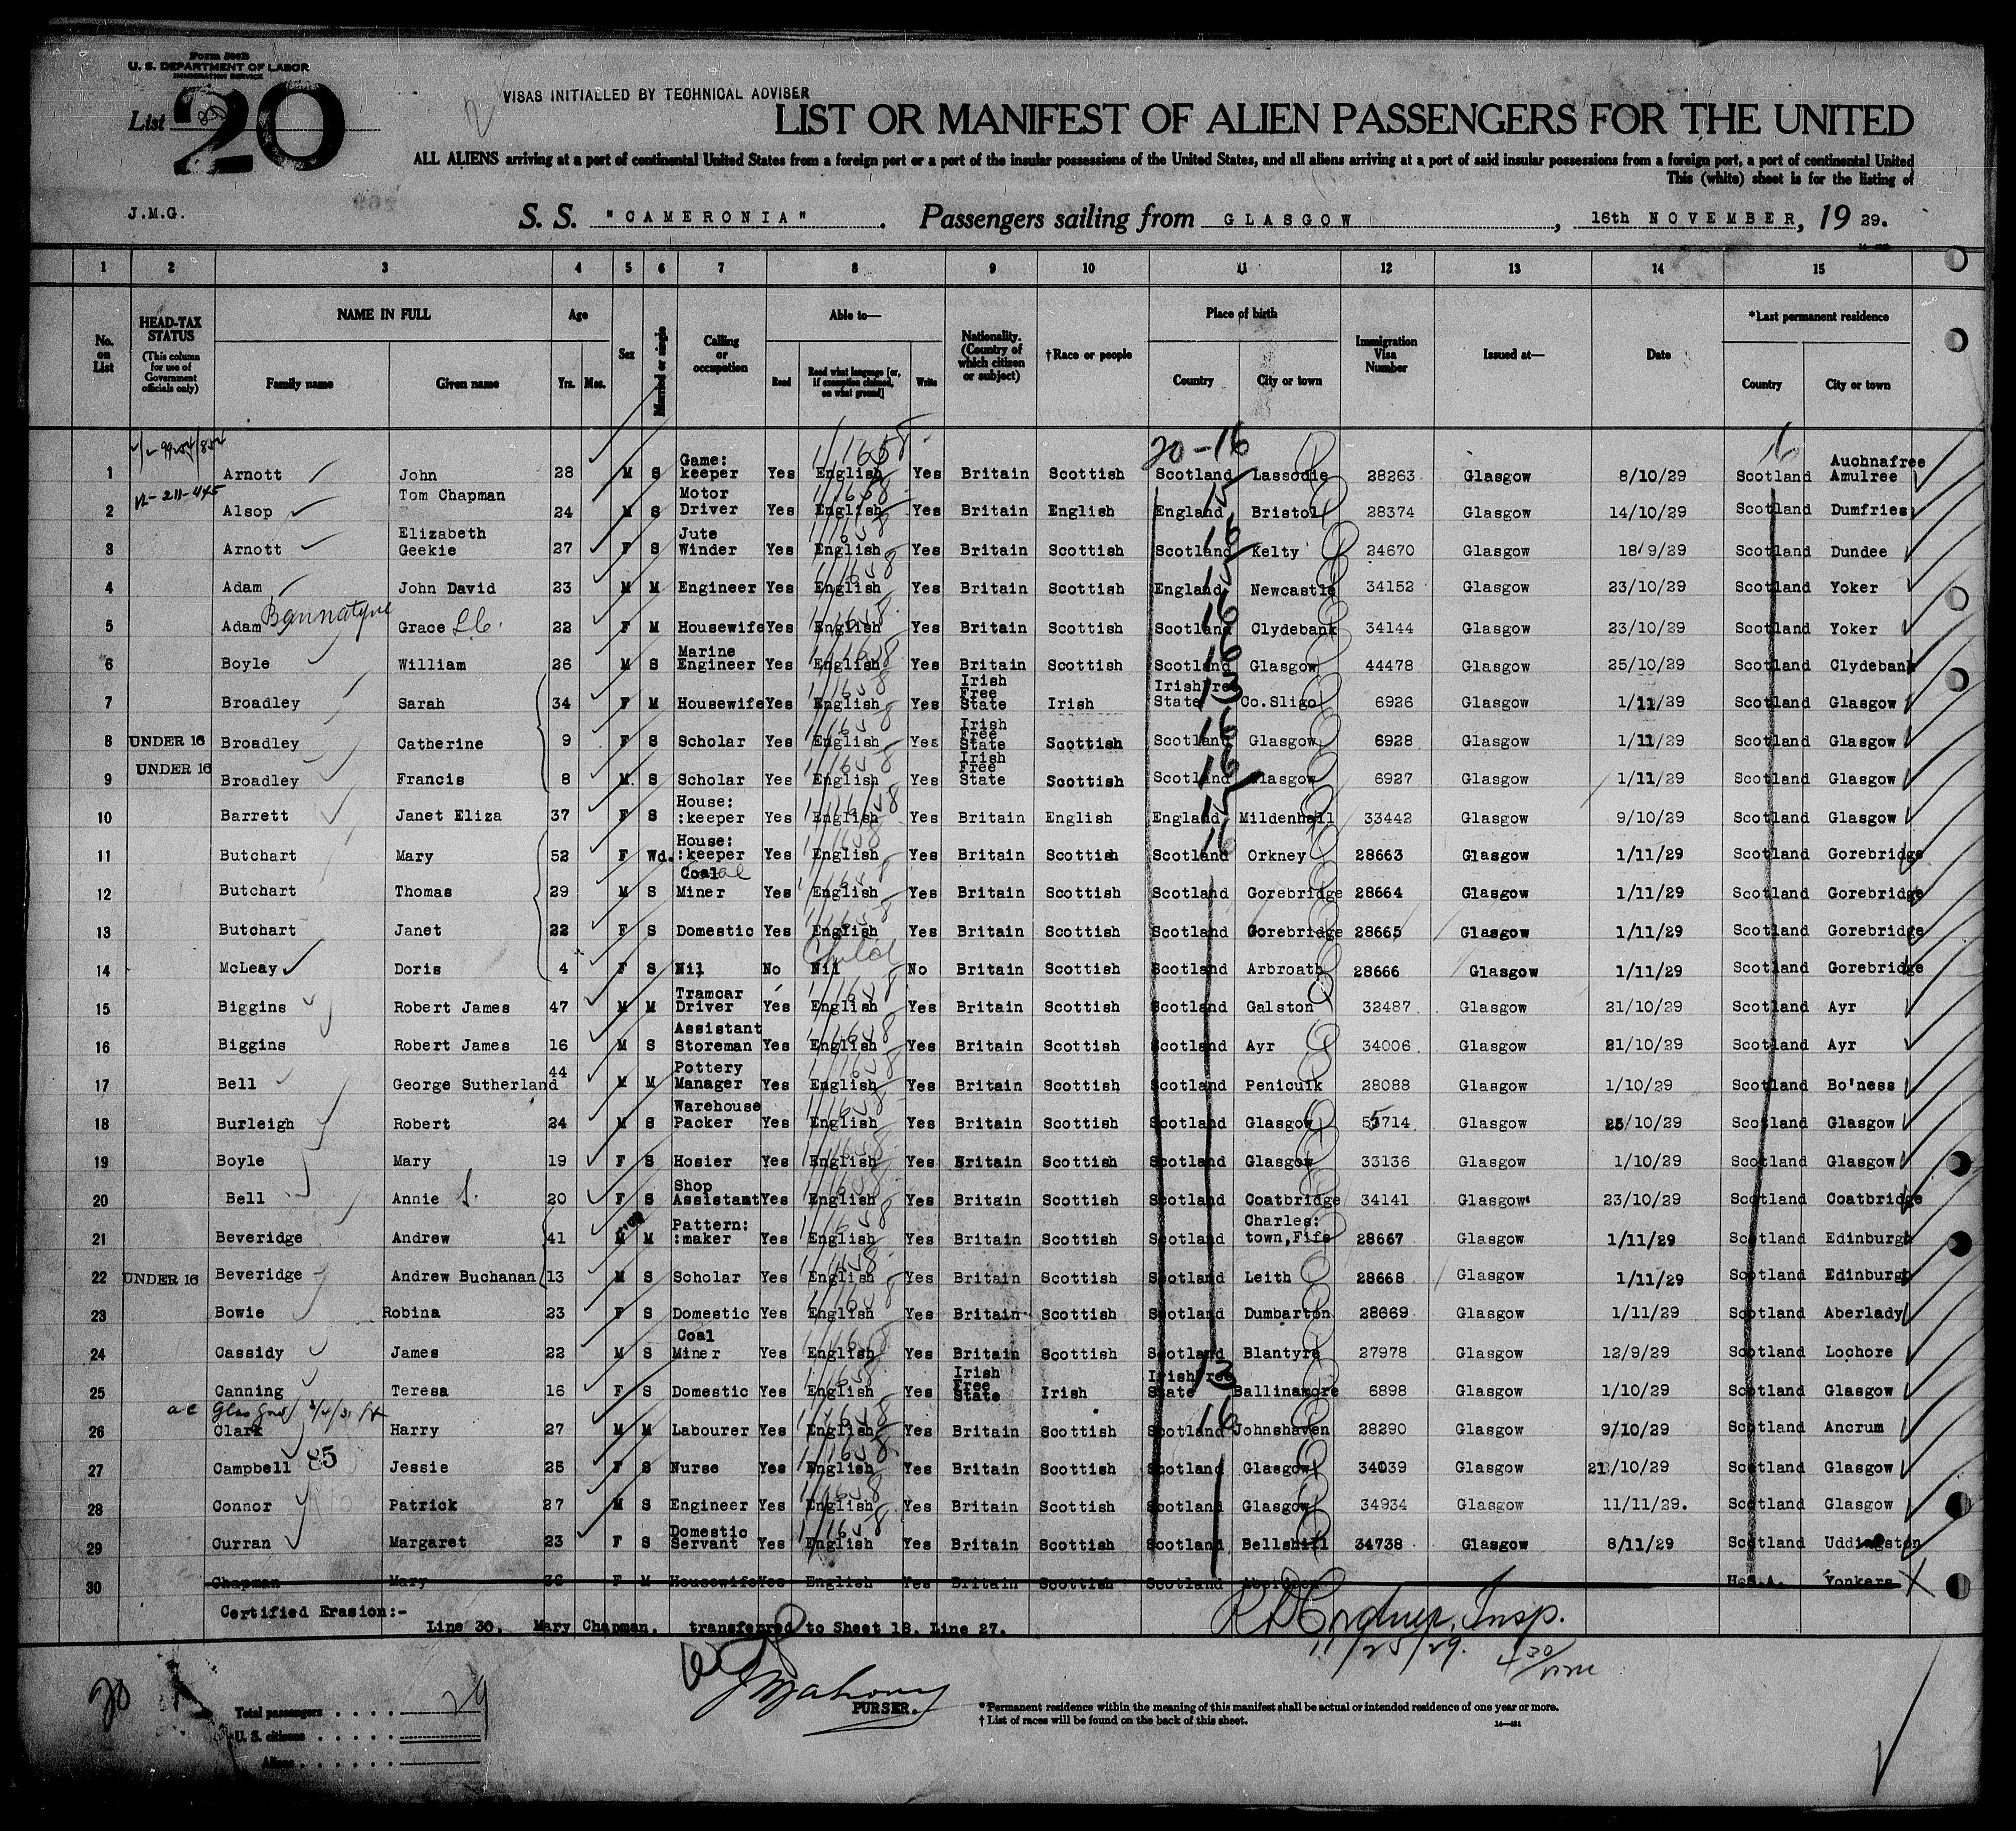 Form 500B
U. S. DEPARTMENT OF LABOR
IMMIGRATION SERVICE
List 20
VISAS INITIALLED BY TECHNICAL ADVISER
LIST OR MANIFEST OF ALIEN PASSENGERS FOR THE UNITED
ALL ALIENS arriving at a port of continental United States from a foreign port or a port of the insular possessions of the United States, and all aliens arriving at a port of said insular possessions from a foreign port, a port of continental United
This (white) sheet is for the listing of
J.M.G.
S. S. "CAMERONIA". Passengers sailing from GLASGOW, 16th NOVEMBER, 19 29.
1 2 3 4 5 6 7 8 9 10 11 12 13 14 15
No. on List
HEAD-TAX STATUS (This column for use of Government officials only)
NAME IN FULL Family name Given name
Age Yrs. Mos.
Sex
Married or single
Calling or occupation
Able to— Read Read what language [or, if exemption claimed, on what ground] Write
Nationality. (Country of which citizen or subject)
†Race or people
Place of birth Country City or town
Immigration Visa Number
Issued at—
Date
*Last permanent residence Country City or town
20-16
1 Arnott John 28 M S Game: keeper Yes English Yes Britain Scottish Scotland Lassodie 28263 Glasgow 8/10/29 Scotland Auchnafree Amulree
2 Alsop Tom Chapman 24 M S Motor Driver Yes English Yes Britain English England Bristol 28374 Glasgow 14/10/29 Scotland Dumfries
3 Arnott Elizabeth Geekie 27 F S Jute Winder Yes English Yes Britain Scottish Scotland Kelty 24670 Glasgow 18/9/29 Scotland Dundee
4 Adam John David 23 M M Engineer Yes English Yes Britain Scottish England Newcastle 34152 Glasgow 23/10/29 Scotland Yoker
Bannatyne
5 Adam Grace 22 F M Housewife Yes English Yes Britain Scottish Scotland Clydebank 34144 Glasgow 23/10/29 Scotland Yoker
6 Boyle William 26 M S Marine Engineer Yes English Yes Britain Scottish Scotland Glasgow 44478 Glasgow 25/10/29 Scotland Clydebank
7 Broadley Sarah 34 F M Housewife Yes English Yes Irish Free State Irish Irish Free State Co.Sligo 6926 Glasgow 1/11/29 Scotland Glasgow
8 UNDER 16 Broadley Catherine 9 F S Scholar Yes English Yes Irish Free State Scottish Scotland Glasgow 6928 Glasgow 1/11/29 Scotland Glasgow
9 UNDER 16 Broadley Francis 8 M. S Scholar Yes English Yes Irish Free State Scottish Scotland Glasgow 6927 Glasgow 1/11/29 Scotland Glasgow
10 Barrett Janet Eliza 37 F S House: :keeper Yes English Yes Britain English England Mildenhall 33442 Glasgow 9/10/29 Scotland Glasgow
11 Butchart Mary 52 F Wd. House: :keeper Yes English Yes Britain Scottish Scotland Orkney 28663 Glasgow 1/11/29 Scotland Gorebridge
12 Butchart Thomas 29 M S Coal Miner Yes English Yes Britain Scottish Scotland Gorebridge 28664 Glasgow 1/11/29 Scotland Gorebridge
13 Butchart Janet 22 F S Domestic Yes English Yes Britain Scottish Scotland Gorebridge 28665 Glasgow 1/11/29 Scotland Gorebridge
Child
14 McLeay Doris 4 F S Nil No Nil No Britain Scottish Scotland Arbroath 28666 Glasgow 1/11/29 Scotland Gorebridge
15 Biggins Robert James 47 M M Tramcar Driver Yes English Yes Britain Scottish Scotland Galston 32487 Glasgow 21/10/29 Scotland Ayr
16 Biggins Robert James 16 M S Assistant Storeman Yes English Yes Britain Scottish Scotland Ayr 34006 Glasgow 21/10/29 Scotland Ayr
17 Bell George Sutherland 44 M M Pottery Manager Yes English Yes Britain Scottish Scotland Penicuik 28088 Glasgow 1/10/29 Scotland Bo'ness
18 Burleigh Robert 24 M S Warehouse Packer Yes English Yes Britain Scottish Scotland Glasgow 55714 Glasgow 25/10/29 Scotland Glasgow
19 Boyle Mary 19 F S Hosier Yes English Yes Britain Scottish Scotland Glasgow 33136 Glasgow 1/10/29 Scotland Glasgow
20 Bell Annie 20 F S Shop Assistant Yes English Yes Britain Scottish Scotland Coatbridge 34141 Glasgow 23/10/29 Scotland Coatbridge
21 Beveridge Andrew 41 M M Pattern: :maker Yes English Yes Britain Scottish Scotland Charles: town,Fife 28667 Glasgow 1/11/29 Scotland Edinburgh
22 UNDER 16 Beveridge Andrew Buchanan 13 M S Scholar Yes English Yes Britain Scottish Scotland Leith 28668 Glasgow 1/11/29 Scotland Edinburgh
23 Bowie Robina 23 F S Domestic Yes English Yes Britain Scottish Scotland Dumbarton 28669 Glasgow 1/11/29 Scotland Aberlady
24 Cassidy James 22 M S Coal Miner Yes English Yes Britain Scottish Scotland Blantyre 27978 Glasgow 12/9/29 Scotland Lochore
25 Canning Teresa 16 F S Domestic Yes English Yes Irish Free State Irish Irish Free State Ballinamore 6898 Glasgow 1/10/29 Scotland Glasgow
26 Clark Harry 27 M M Labourer Yes English Yes Britain Scottish Scotland Johnshaven 28290 Glasgow 9/10/29 Scotland Ancrum
27 Campbell 85 Jessie 25 F S Nurse Yes English Yes Britain Scottish Scotland Glasgow 34039 Glasgow 21/10/29 Scotland Glasgow
28 Connor Patrick 27 M S Engineer Yes English Yes Britain Scottish Scotland Glasgow 34934 Glasgow 11/11/29. Scotland Glasgow
29 Curran Margaret 23 F S Domestic Servant Yes English Yes Britain Scottish Scotland Bellshill 34738 Glasgow 8/11/29 Scotland Uddingston
30 Chapman Mary 36 F M Housewife Yes English Yes Britain Scottish Scotland Aberdeen Yonkers X
Certified Erasion:-
Line 30. Mary Chapman. transferred to Sheet 18. Line 27.
Insp.
11/25/29.
20
Total passengers 29
U. S. citizens
Aliens
PURSER.
*Permanent residence within the meaning of this manifest shall be actual or intended residence of one year or more.
† List of races will be found on the back of this sheet.